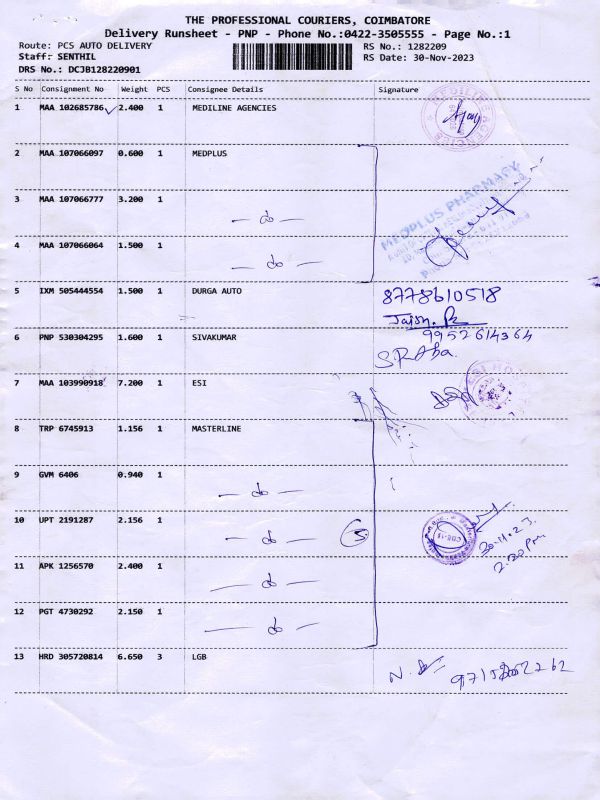 THE PROFESSIONAL COURIERS, COIMBATORE
Delivery Runsheet - PNP - Phone No.:0422-3505555 - Page No.:1
Route: PCS AUTO DELIVERY RS No.: 1282209
Staff: SENTHIL RS Date: 30-Nov-2023
DRS No.: DCJB128220901
S No Consignment No Weight PCS Consignee Details Signature
1 MAA 102685786 2.400 1 MEDILINE AGENCIES
MEDILINE AGENCIES
2 MAA 107066097 0.600 1 MEDPLUS
MEDPLUS PHARMACY
3 MAA 107066777 3.200 1
— do —
4 MAA 107066064 1.500 1
— do —
5 IXM 505444554 1.500 1 DURGA AUTO 8778610518
6 PNP 530304295 1.600 1 SIVAKUMAR 9952614364
7 MAA 103990918 7.200 1 ESI
8 TRP 6745913 1.156 1 MASTERLINE
9 GVM 6406 0.940 1
— do —
10 UPT 2191287 2.156 1
— do — 5
11 APK 1256570 2.400 1
— do —
12 PGT 4730292 2.150 1
— do —
13 HRD 305720814 6.650 3 LGB